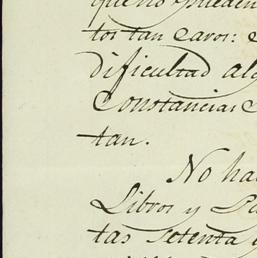 que no pueden
tos tan caros:
dificultad alg
Constancias
tan.
No ha
Libros y Pa
tas setenta y